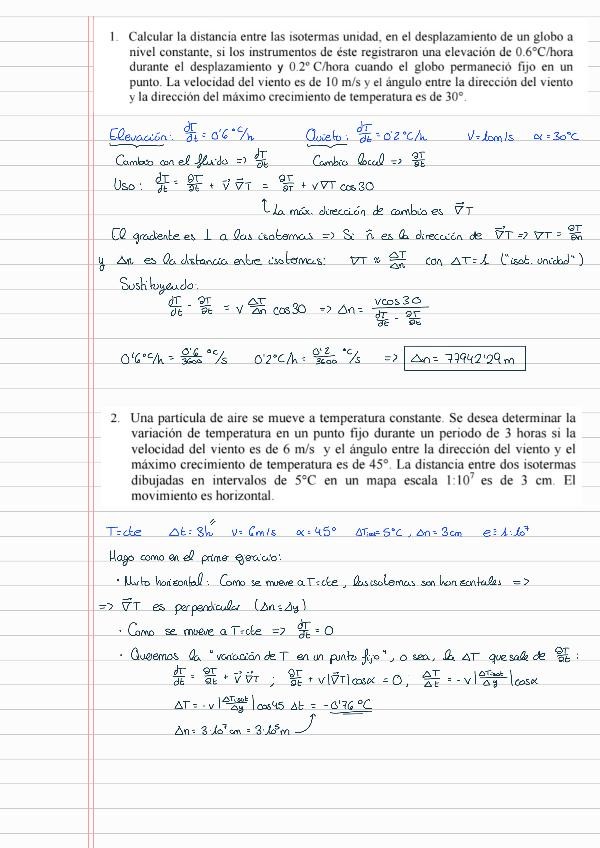 1. Calcular la distancia entre las isotermas unidad, en el desplazamiento de un globo a
nivel constante, si los instrumentos de éste registraron una elevación de 0.6°C/hora
durante el desplazamiento y 0.2° C/hora cuando el globo permaneció fijo en un
punto. La velocidad del viento es de 10 m/s y el ángulo entre la dirección del viento
y la dirección del máximo crecimiento de temperatura es de 30°.
Elevación: dT/dt = 0'6 °C/h Quieto: dT/dt = 0'2 °C/h V = 10 m/s α = 30°C
Cambio con el fluido => dT/dt Cambio local => ∂T/∂t
Uso: dT/dt = ∂T/∂t + v⃗ ∇⃗T = ∂T/∂t + v∇T cos30
La máx. dirección de cambio es ∇⃗T
El gradiente es ⊥ a las isotermas => Si n̂ es la dirección de ∇⃗T => ∇T = ∂T/∂n
y Δn es la distancia entre isotermas: ∇T ≈ ΔT/Δn con ΔT = 1 ("isot. unidad")
Sustituyendo:
dT/dt - ∂T/∂t = v ΔT/Δn cos30 => Δn = vcos30 / (dT/dt - ∂T/∂t)
0'6°C/h = 0'6/3600 °C/s 0'2°C/h = 0'2/3600 °C/s => Δn = 77942'29 m
2. Una partícula de aire se mueve a temperatura constante. Se desea determinar la
variación de temperatura en un punto fijo durante un periodo de 3 horas si la
velocidad del viento es de 6 m/s y el ángulo entre la dirección del viento y el
máximo crecimiento de temperatura es de 45°. La distancia entre dos isotermas
dibujadas en intervalos de 5°C en un mapa escala 1:10⁷ es de 3 cm. El
movimiento es horizontal.
T = cte Δt = 3h V = 6m/s α = 45° ΔTisot = 5°C, Δn = 3cm e = 1:10⁷
Hago como en el primer ejercicio:
· Mvto horizontal: Como se mueve a T=cte, las isotermas son horizontales =>
=> ∇⃗T es perpendicular (Δn = Δy)
· Como se mueve a T=cte => dT/dt = 0
· Queremos la "variación de T en un punto fijo", o sea, la ΔT que sale de ∂T/∂t:
dT/dt = ∂T/∂t + v⃗ ∇⃗T ; ∂T/∂t + v|∇T|cosα = 0, ΔT/Δt = -v|ΔTisot/Δy|cosα
ΔT = -v|ΔTisot/Δy|cos45 Δt = -0'76 °C
Δn = 3·10⁷ cm = 3·10⁵ m